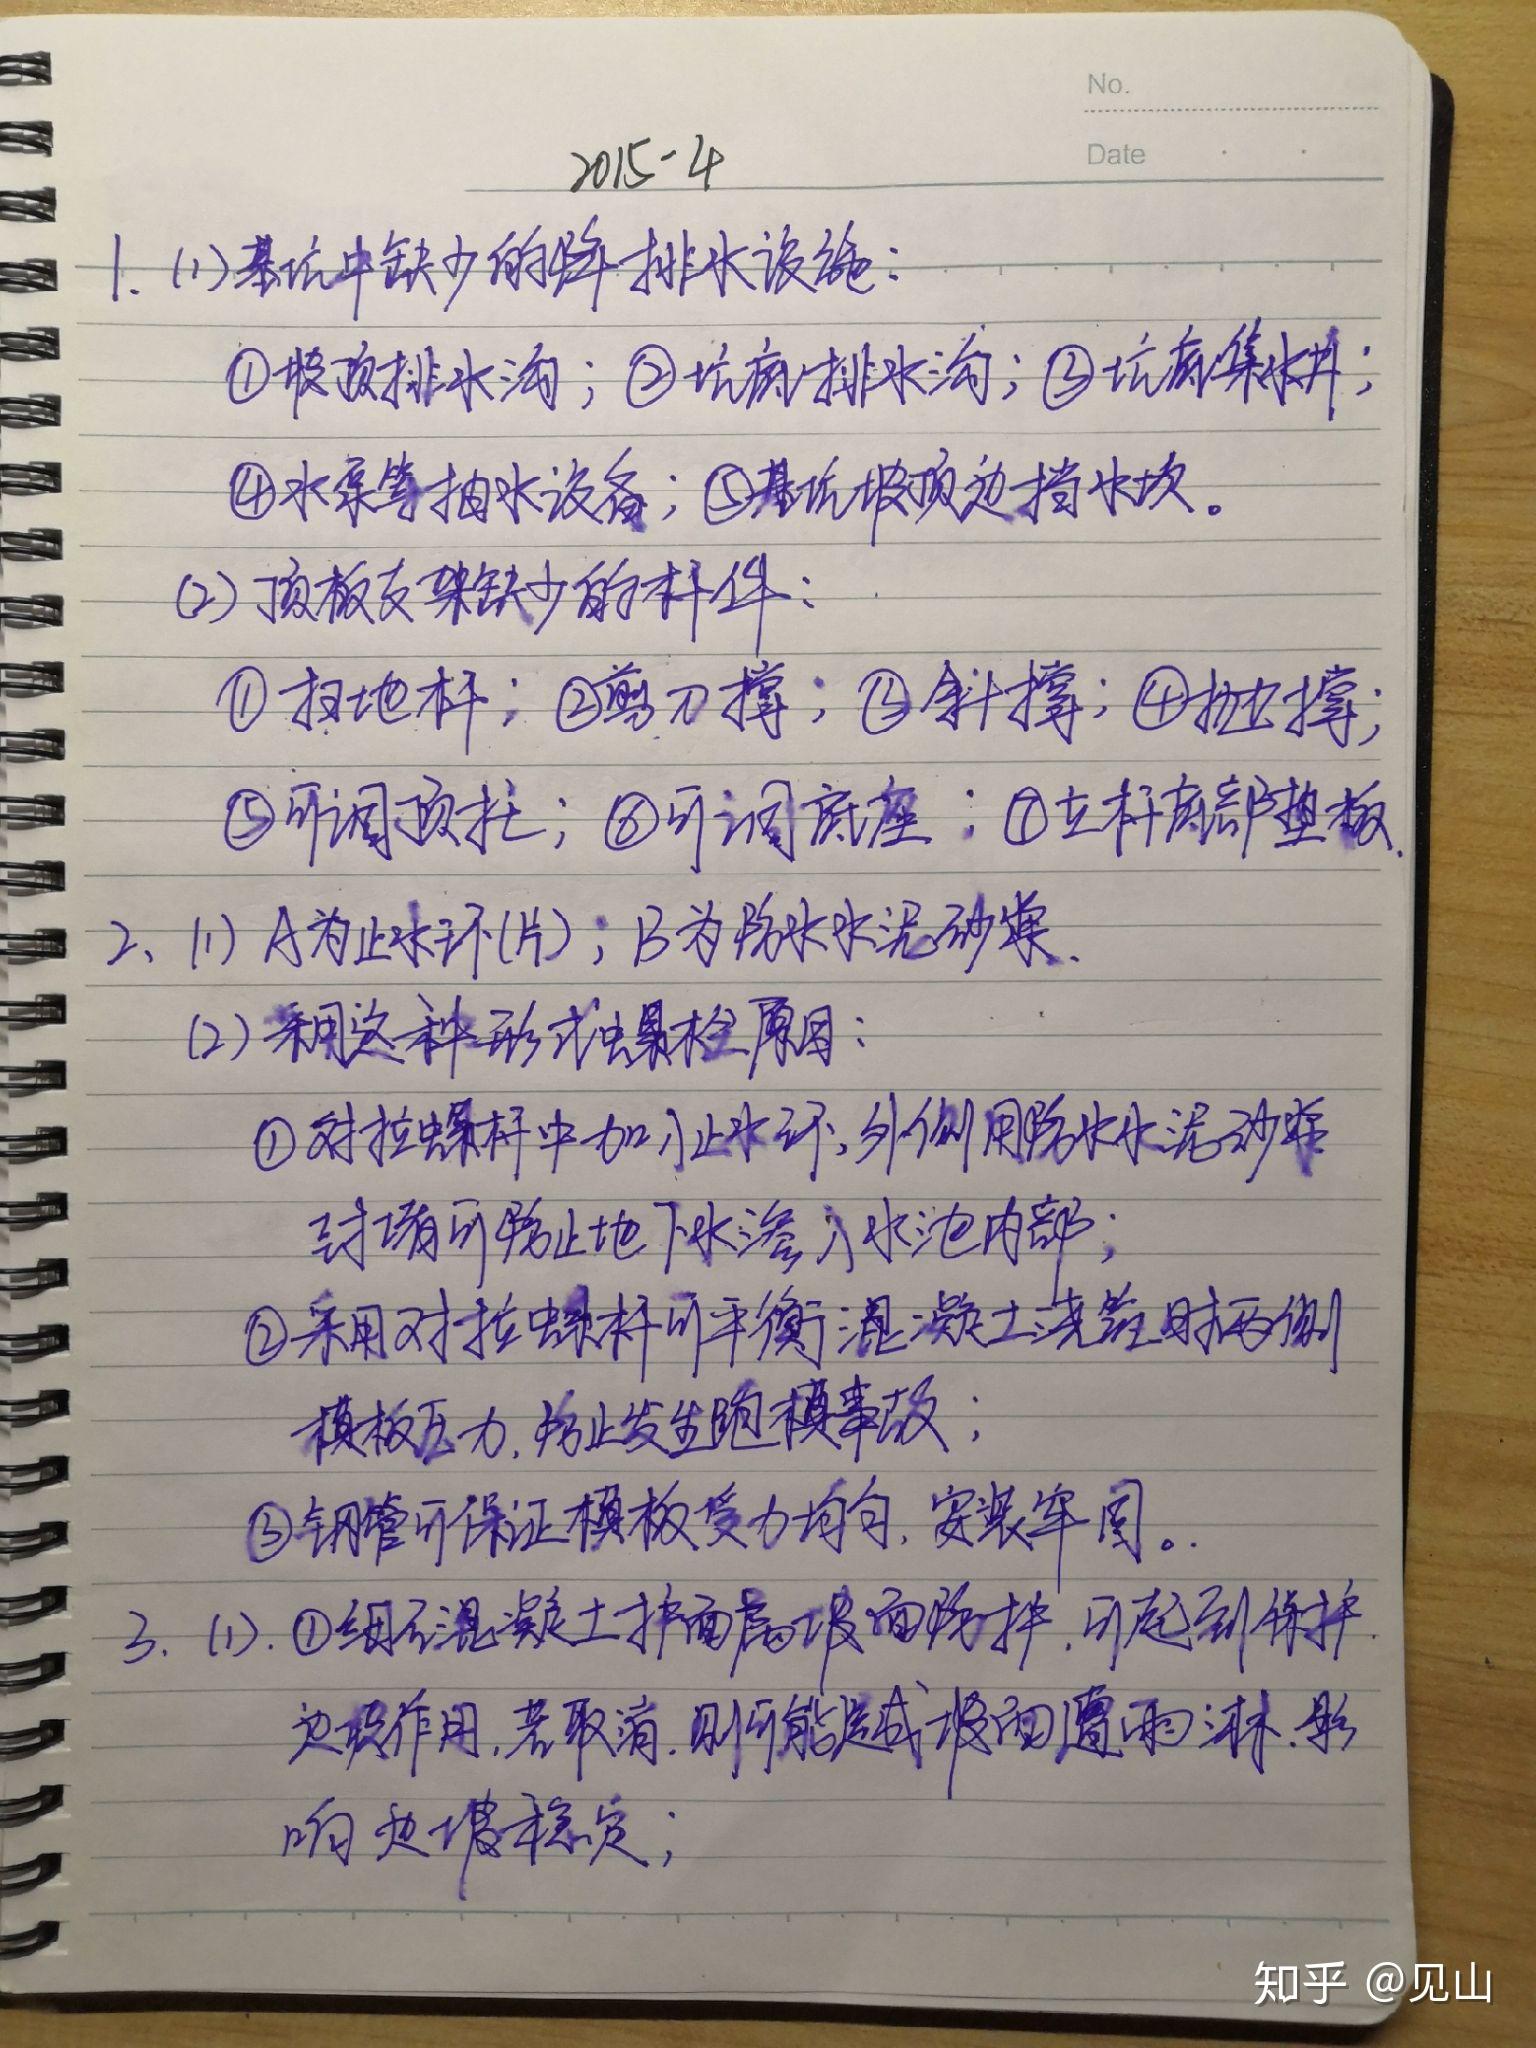 No.
Date
2015-4
1. (1) 基坑中缺少的降排水设施：
①坡顶排水沟；②坑底排水沟；③坑底集水井；
④水泵等抽水设备；⑤基坑坡顶边挡水坎。
(2) 顶板支架缺少的杆件：
①扫地杆；②剪刀撑；③斜撑；④抛撑；
⑤可调顶托；⑥可调底座；⑦立杆底部垫板.
2、(1) A为止水环(片)；B为防水水泥砂浆.
(2) 采用这种形式螺栓原因：
①对拉螺杆中加入止水环，外侧用防水水泥砂浆
封堵可防止地下水渗入水池内部；
②采用对拉螺杆可平衡混凝土浇筑时两侧
模板压力，防止发生跑模事故；
③钢管可保证模板受力均匀，安装牢固。
3、(1). ①细石混凝土护面属坡面防护，可起到保护
边坡作用，若取消，则可能造成坡面遭雨淋，影
响边坡稳定；
知乎 @见山